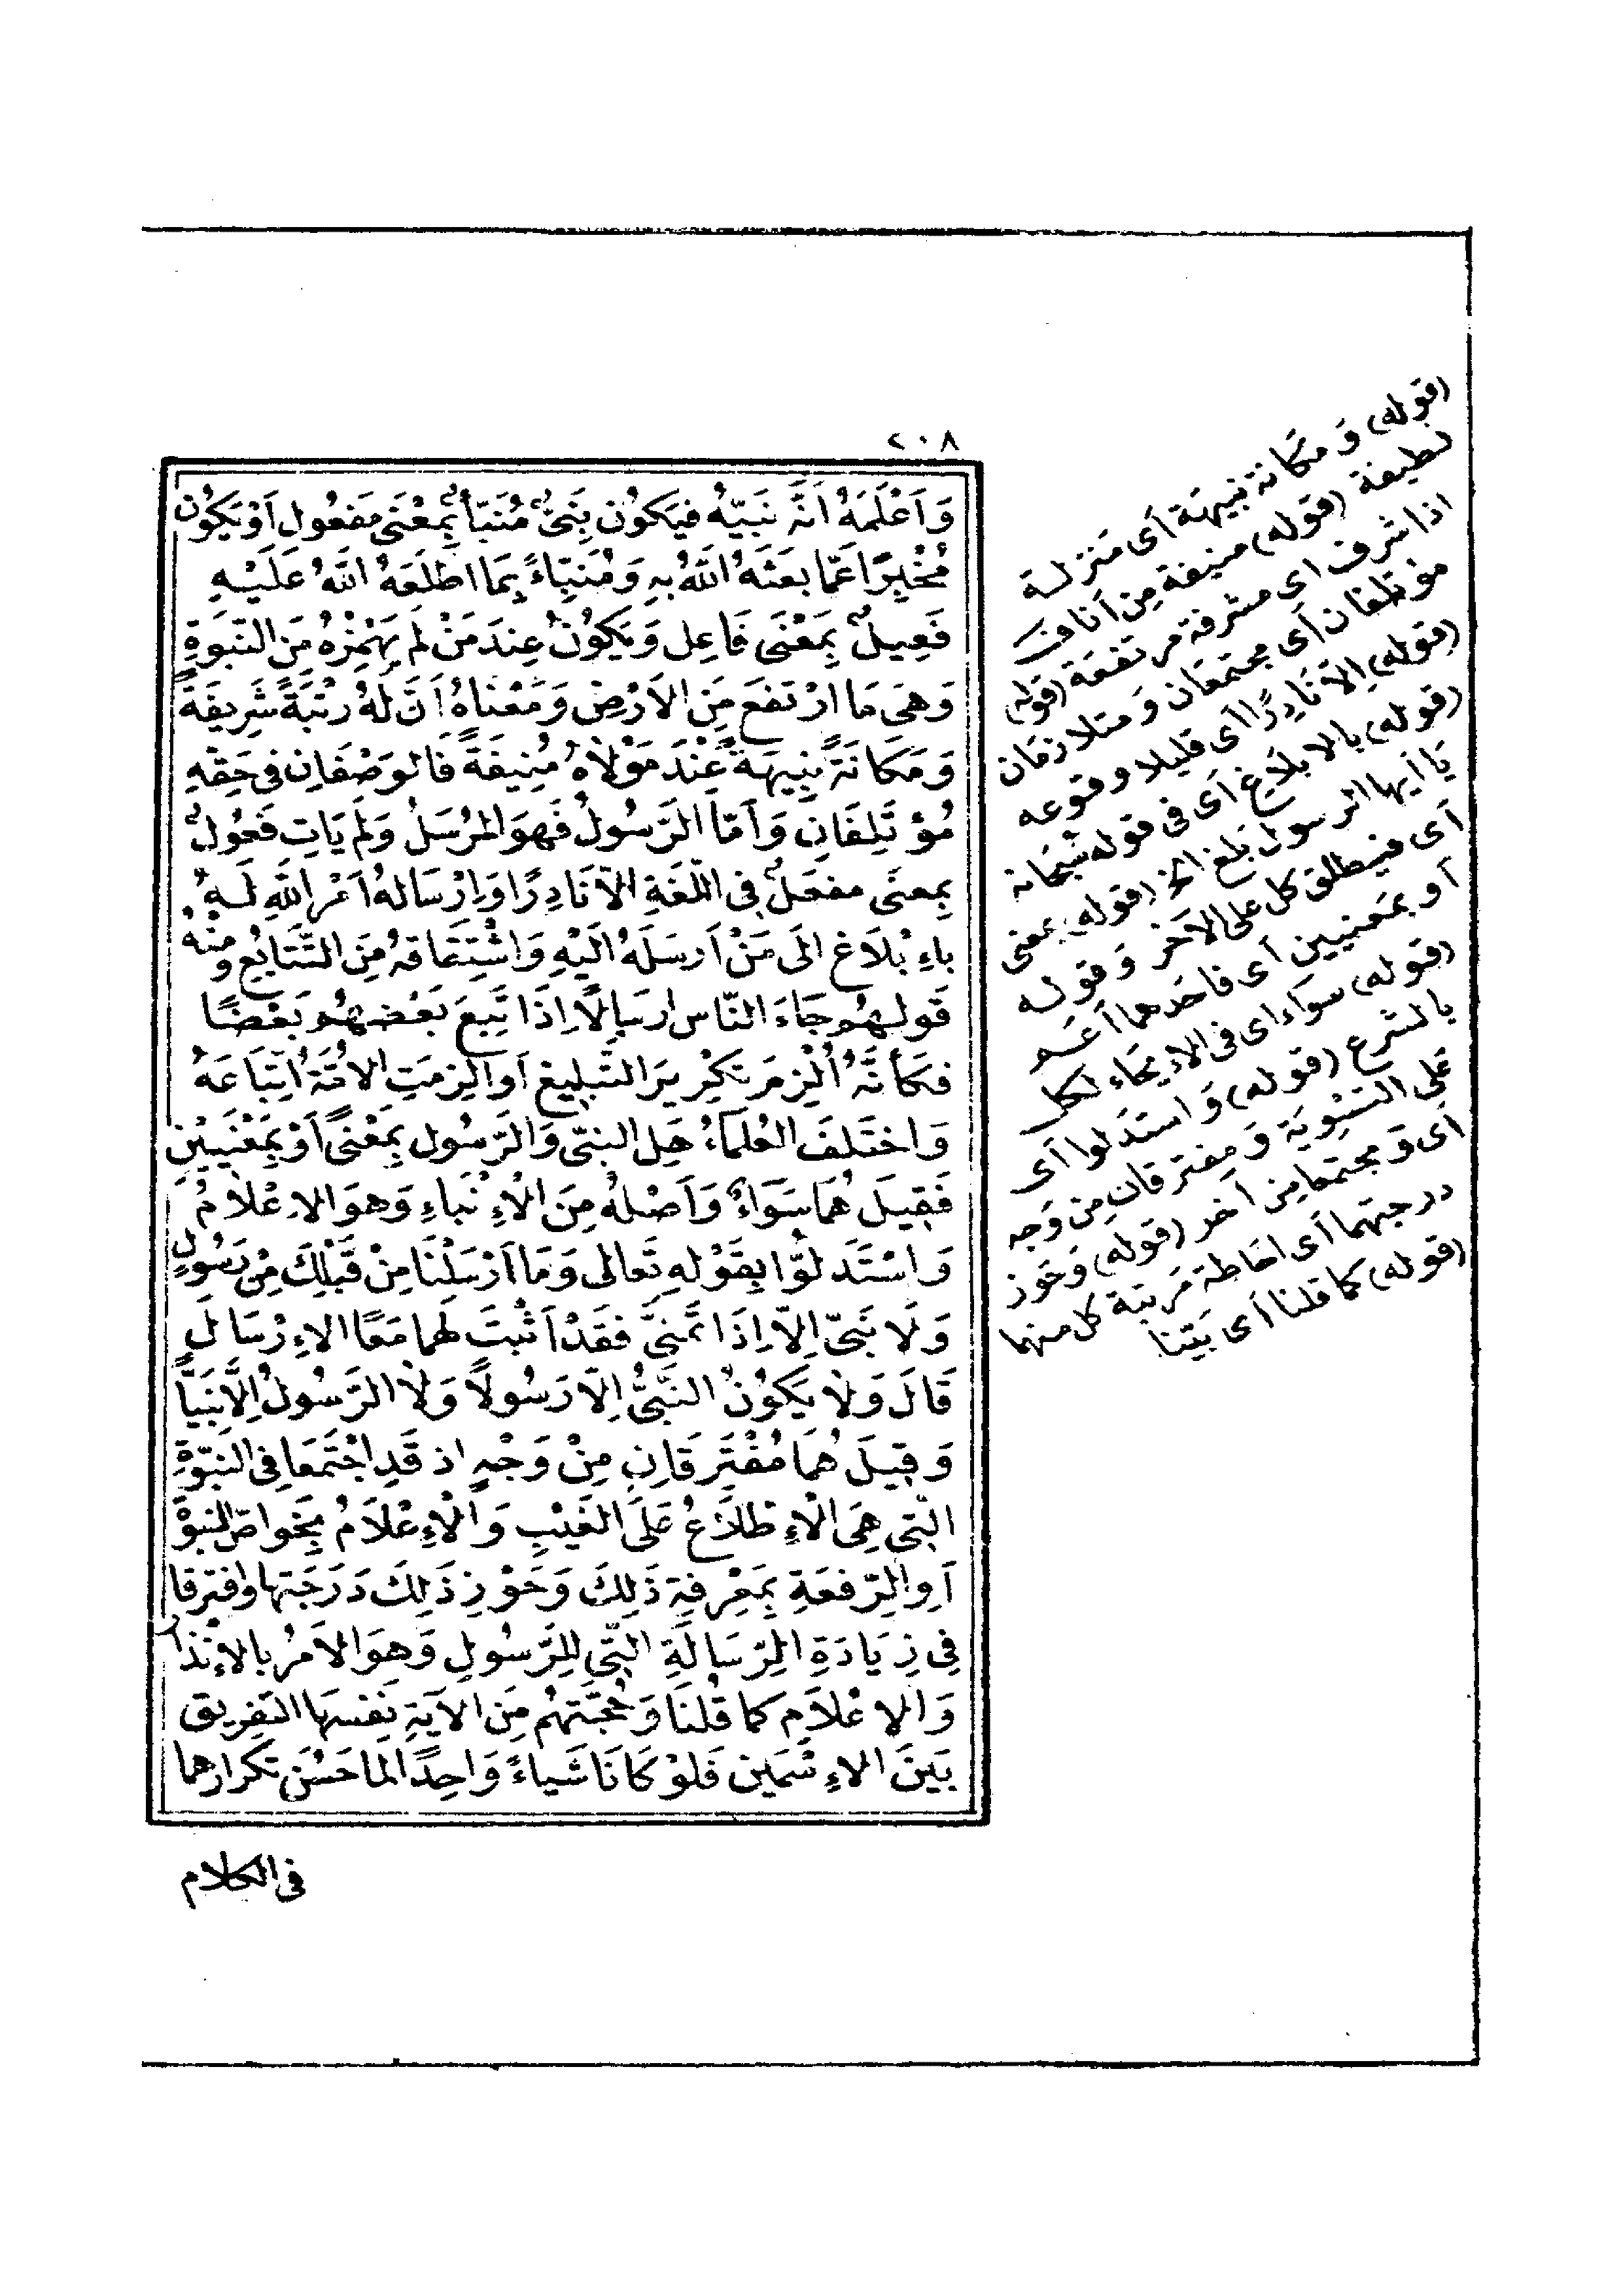 ٢٠٨
وَاَعْلَمَهُ اَنَّهُ نَبِيّهُ فيَكوُن بَنِىُّ مُنَبّأٌ بِمَعْنَى مَفعُول اَوْ يَكوُن
مُخْبِرًا عَمّا بعَثَهُ اللّهُ بِهِ وَمُنَبِّاءً بِمَا اطلَعَهُ اللّهُ عَلَيْهِ
فَعِيلٌ بِمَعْنَى فَاعِل وَيَكوُنُ عِندَ مَنْ لَم يَهْمِزْهُ مِنَ النّبَوَةِ
وَهِىَ مَا ارْتَفَعَ مِنَ الاَرْضِ وَمَعْناهُ اَنَّ لَهُ رتْبَةً شَرِيفَةً
وَمَكاَنَةً نَبِيهَةً عِنْدَ مَوْلاَهُ مُنِيفَةً فَالوَصْفَانِ فى حَقِّهِ
مُؤتَلِفَانِ وَاَمّا الرَّسُولُ فَهوَ المُرْسَلُ وَلَم يَاتِ فَعُولٌ
بِمعنَى مفعَلٍ فِى اللّغَةِ اِلاّ نَادِرًا وَاِرْسَالهُ اَمْرُ اللّهِ لَهُ
باءِبْلَاغ اِلَى مَنْ اَرسَلَهُ اِلَيْهِ وَاشْتِقَاقهُ مِنَ التَّتَابُعِ وَمِنْهُ
قَولهُم جَاءَ النّاس اَرسَالًا اِذَا تَبِعَ بَعْضهُم بَعْضًا
فكَأَنَّهُ اُلْزِمَ تكْرِيرَ التَّبلِيغِ اَو اُلْزِمَتِ الاُمَّةُ اتِّبَاعَهُ
وَاختَلَفَ العُلَمَاءُ هَلِ النبىّ وَالرّسُول بِمَعْنًى اَوْ بِمَعْنَيَيْنِ
فَقِيلَ هُمَا سَوَاءٌ وَاَصْلهُ مِنَ الْاءِنْبَاءِ وَهوَ الاءِعْلَامُ
وَاسْتَدَلوُّا بِقَوْلهِ تعَالى وَمَا اَرْسَلْنَا مِنْ قَبْلِكَ مِنْ رَسُولٍ
وَلَا نَبِىّ اِلاّ اِذَا تَمنّى فقَدْ اَثبتَ لهُما مَعًا الاءِرْسَال
قَالَ وَلاَ يَكوُنُ النَّبِىُّ اِلاّ رَسُولاً وَلاَ الرَّسُولُ اِلاَّ نَبِيًّا
وَقِيلَ هُمَا مُفْتَرِقَانِ مِنْ وَجْهٍ اذ قَدِ اجْتَمَعَا فِى النبّوَةِ
الّتِى هِىَ الْاءِطّلَاعُ عَلَى الغَيْبِ وَالْاءِعْلَامُ بِخَواصّ النبوَّةِ
اَوِ الرِّفعَةِ بِمَعْرِفَةِ ذَلِكَ وَحَوْزِ ذَلِكَ دَرَجَتِهَا وَافتَرقَا
فِى زِيَادَةِ الرِّسَالَةِ الّتِى لِلرَّسُولِ وَهوَ الاَمْرُ بِالاءِنْذَار
وَالاءِعْلَامِ كمَا قُلنَا وَحُجَّتهُم مِنَ الآيَةِ نَفْسِهَا التَفرِيق
بَيْنَ الاءِسْمَيْنِ فَلَوْ كاَنَا شَيْاءً وَاحِدًا لمَا حَسُنَ تكرَارهمَا
فى الكلام
(قوله) وَمكَانة نَبيهَة أَى مَنْزلة
لطيفة (قوله) منيفة مِن أَنافَ
اذا شرف اى مشرفة مرتفعة (قوله)
مؤتلفان أَى مجتمعَان وَمتلازمَان
(قوله) اِلاّ نَادِرًا أَى قليلا وقوعه
(قوله) بالابلاَغ أَى فى قوله سُبْحَانه
يَا أيها الرسول بلغ الخ (قوله) بمعنى
أى فيطلق كل على الآخر وَقوله
أو بمعنيين أى فاحَدهما أعَم
(قوله) سوَاء اى فى الاءيحَاء لكل
بالشرع (قوله) وَاستدَلوا أى
عَلى التسْوِيَة وَمفترقان مِن وَجه
أى وَمجتمعا مِن آخر (قوله) وَحَوز
درجتهما أى احَاطة مَرتبة كل منهما
(قوله) كما قلنا أى بَيّنا